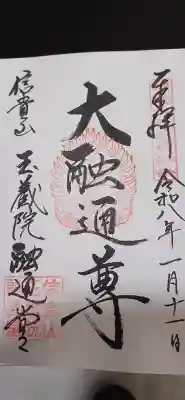 奉拝
令和八年一月十一日
大融通尊
信貴山
玉蔵院
融通堂